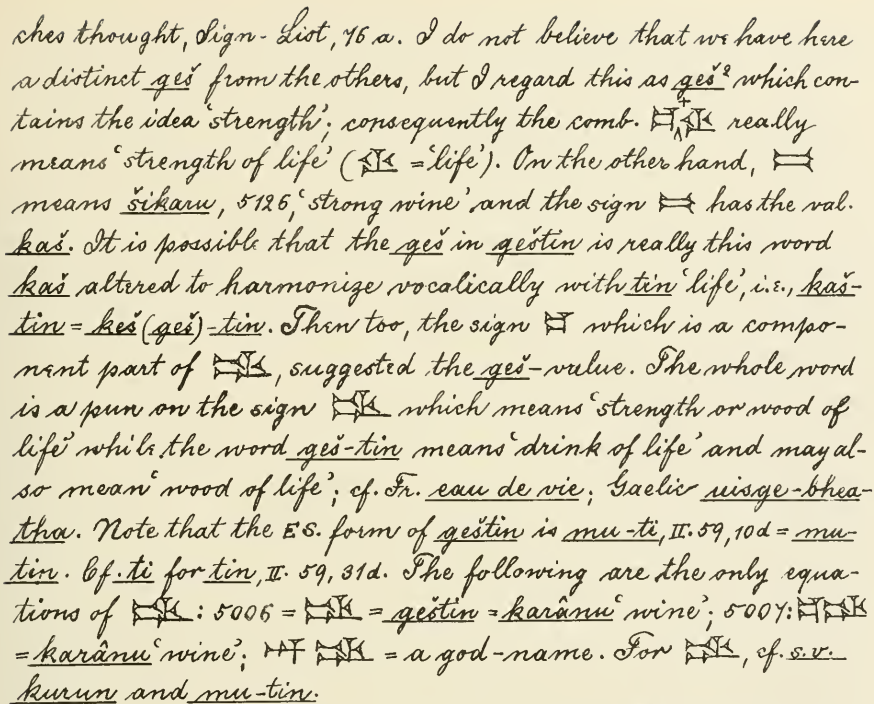 ches thought, Sign-List, 76 a. I do not believe that we have here
a distinct geš from the others, but I regard this as geš² which con-
tains the idea ‘strength’; consequently the comb. really
means ‘strength of life’ ( = ‘life’). On the other hand,
means šikaru, 5126, ‘strong wine’ and the sign has the val.
kaš. It is possible that the geš in geštin is really this word
kaš altered to harmonize vocalically with tin ‘life’, i.e., kaš-
tin = keš (geš)-tin. Then too, the sign which is a compo-
nent part of , suggested the geš-value. The whole word
is a pun on the sign which means ‘strength or wood of
life’ while the word geš-tin means ‘drink of life’ and may al-
so mean ‘wood of life’; cf. Fr. eau de vie; Gaelic uisge-bhea-
tha. Note that the ES. form of geštin is mu-ti, II. 59, 10d = mu-
tin. Cf. ti for tin, II. 59, 31d. The following are the only equa-
tions of : 5006 = = geštin = karânu ‘wine’; 5007:
= karânu ‘wine’; = a god-name. For , cf. s.v.
kurun and mu-tin.